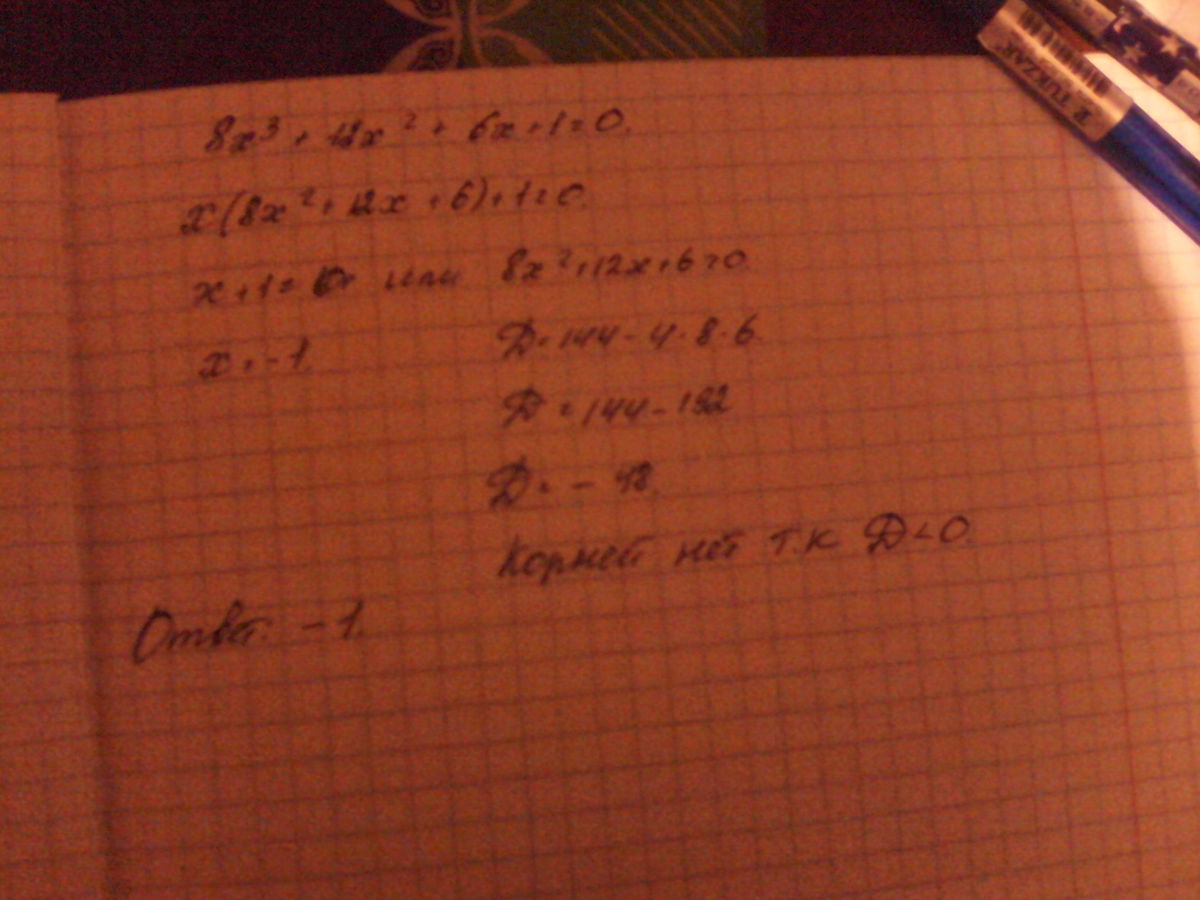 8x³ + 12x² + 6x + 1 = 0.
x(8x² + 12x + 6) + 1 = 0.
x + 1 = 0 или 8x² + 12x + 6 = 0
x = -1. D = 144 - 4 · 8 · 6.
D = 144 - 192
D = - 48.
Корней нет т.к D < 0.
Ответ: -1.
R. TUKZAR